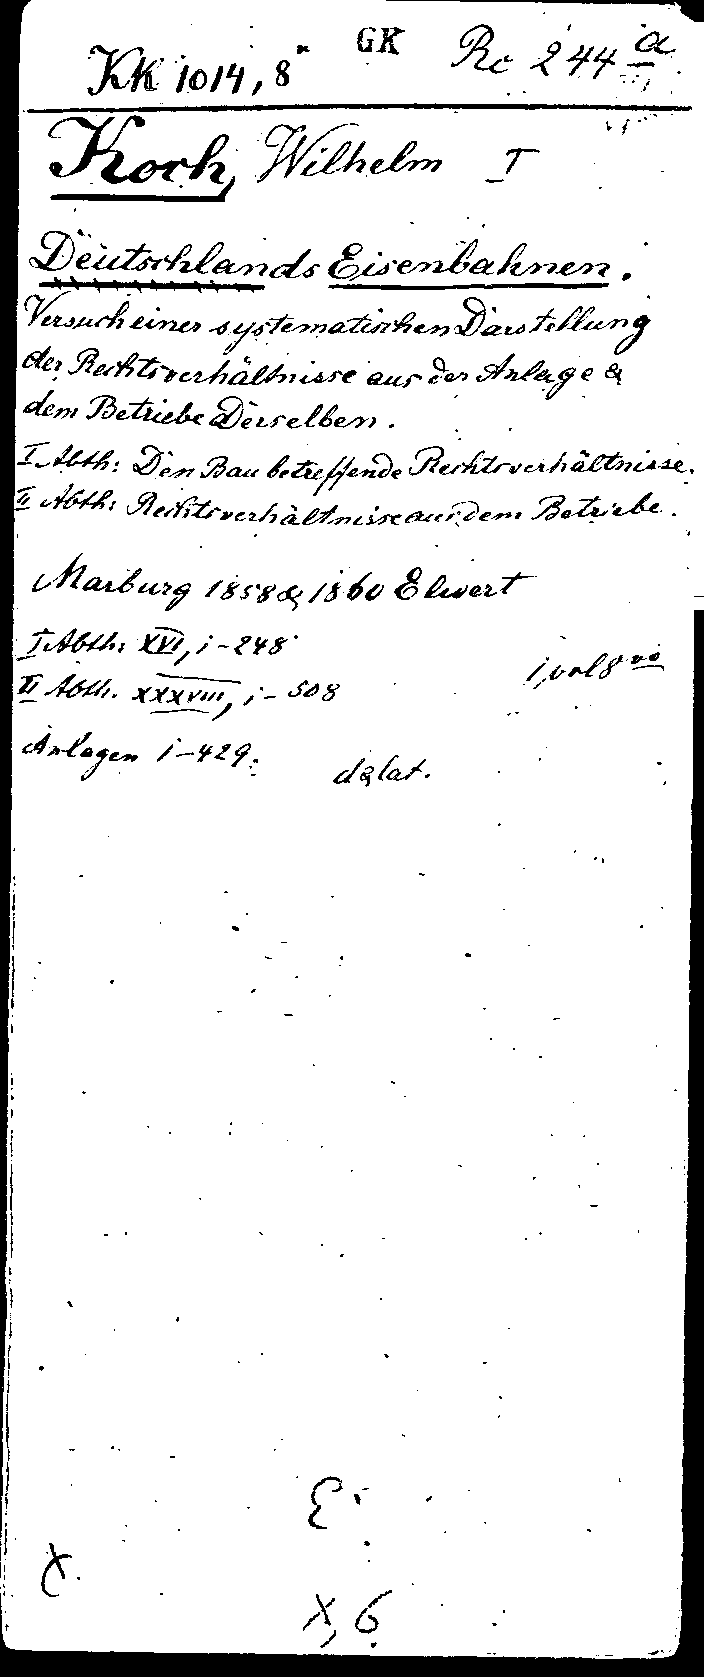 KK 1014, 8" GK Rc 244 a
Koch, Wilhelm I
Deutschlands Eisenbahnen.
Versuch einer systematischen Darstellung
der Rechtsverhältnisse aus der Anlage &
dem Betriebe derselben.
I Abth: Den Bau betreffende Rechtsverhältnisse.
II Abth: Rechtsverhältnisse aus dem Betriebe.
Marburg 1858 & 1860 Elwert
I Abth: XVI, 1-248
1, vol 8vo
II Abth. XXXVIII, 1-508
Anlagen 1-429.
d & lat.
X, 6